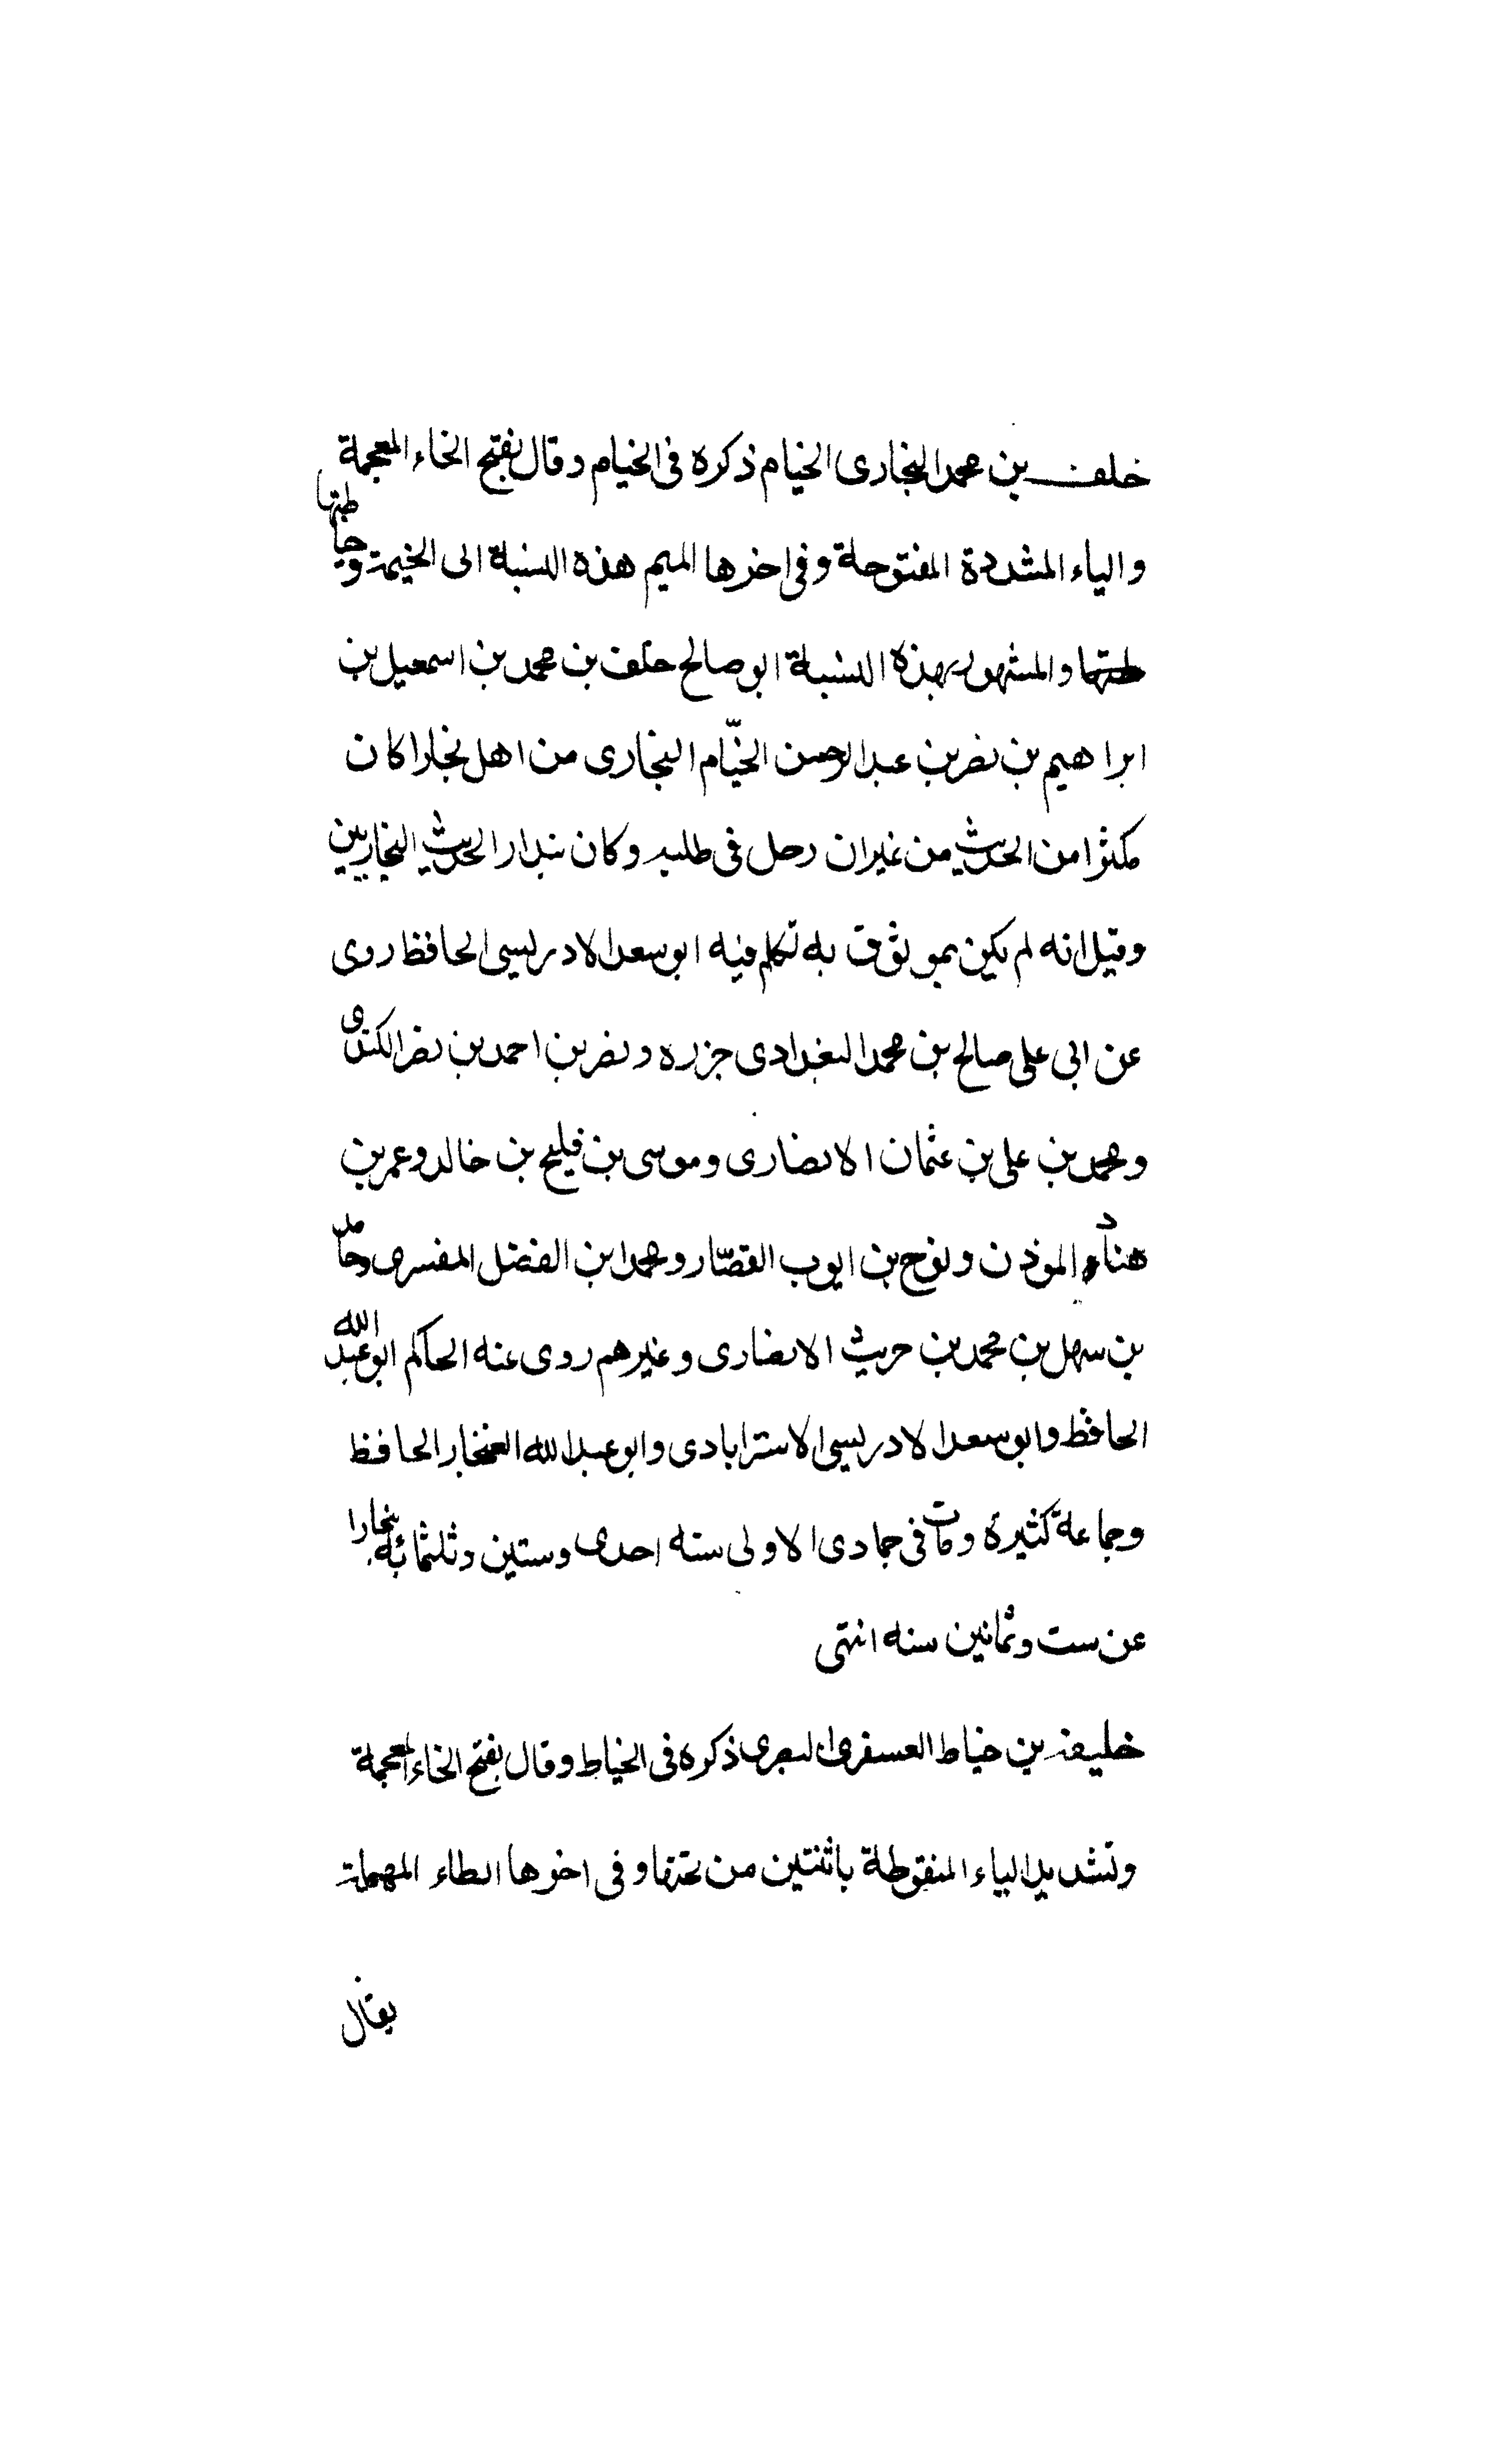 خلف بن محمد البخارى الخيام ذكره فى الخيام وقال بفتح الخاء المعجمة
والياء المشددة المفتوحة وفى اخرها الميم هذه النسبة الى الخيمة وخياطتها
والمشهور بهذه النسبة ابو صالح خلف بن محمد بن اسمعيل بن
ابراهيم بن نصر بن عبد الرحمن الخيّام البخارى من اهل بخارا كان
مكثرا من الحديث من غير ان رحل فى طلبه وكان بندار الحديث البخاريين
وقيل انه لم يكن بموثوق به تكلم فيه ابو سعد الادريسى الحافظ روى
عن ابى على صالح بن محمد البغدادى جزره ونصر بن احمد بن نصر الكندى
ومحمد بن على بن عثمان الانصارى وموسى بن فليح بن خالد وعمر بن
هناد المؤذن ونوح بن ايوب القصّار ومحمد ابن الفضل المفسر وحامد
بن سهل بن محمد بن حريث الانصارى وغيرهم روى عنه الحاكم ابو عبد الله
الحافظ وابو سعد الادريسى الاسترابادى وابو عبد الله الغنجار الحافظ
وجماعة كثيرة ومات فى جمادى الاولى سنه احدى وستين وثلثمائه ببخارا
عن ست وثمانين سنه انتهى
خليفة بن خياط العصفرى البصرى ذكره فى الخياط وقال بفتح الخاء المعجمة
وتشديد الياء المنقوطة باثنتين من تحتها وفى اخرها الطاء المهملة
يقال